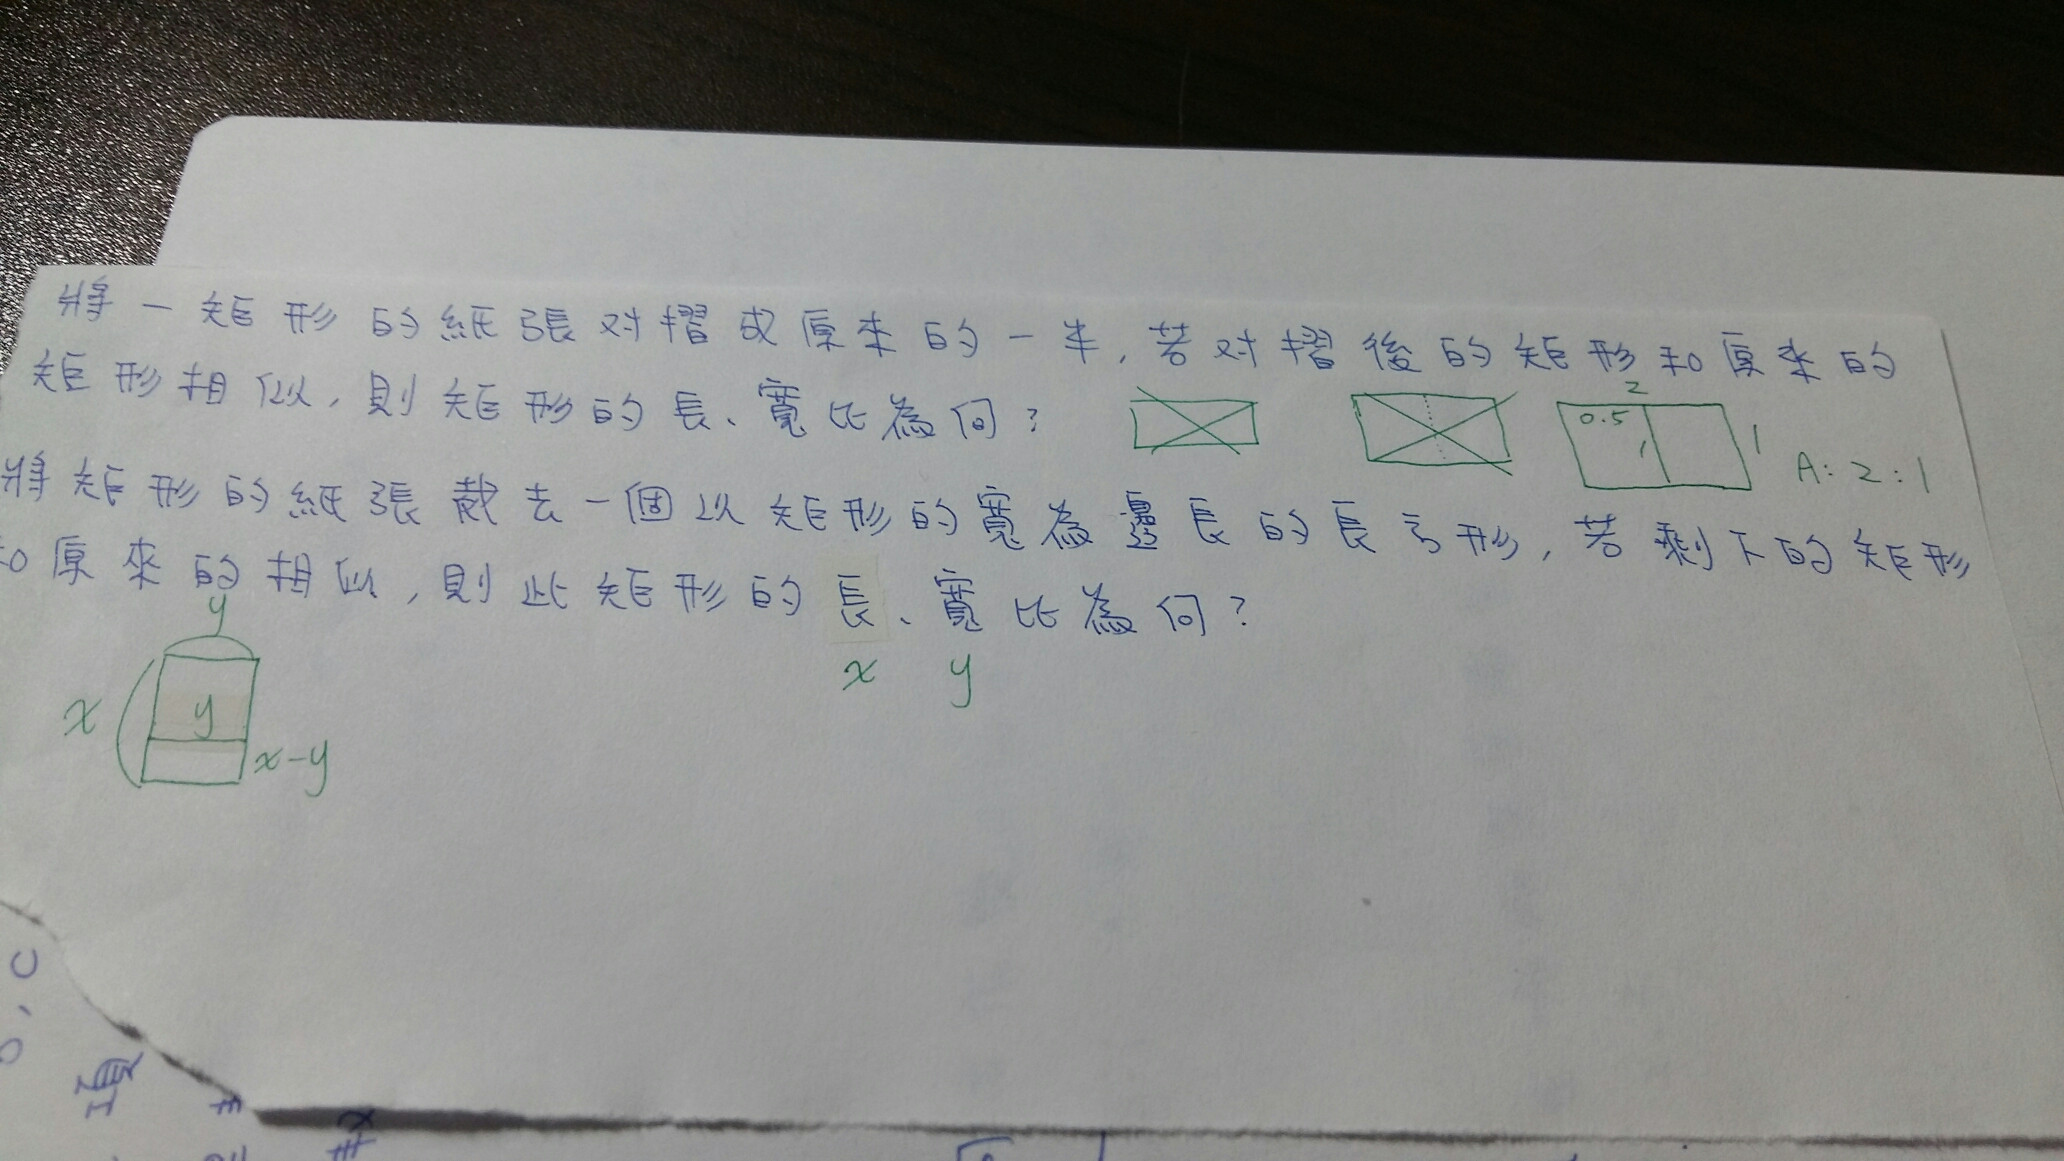 將一矩形的紙張对摺成原來的一半,若对摺後的矩形和原來的
矩形相似,則矩形的長、寬比為何?
2
0.5
1
1
A:2:1
將矩形的紙張截去一個以矩形的寬為邊長的長方形,若剩下的矩形
和原來的相似,則此矩形的長、寬比為何?
x y
y
x
y
x-y